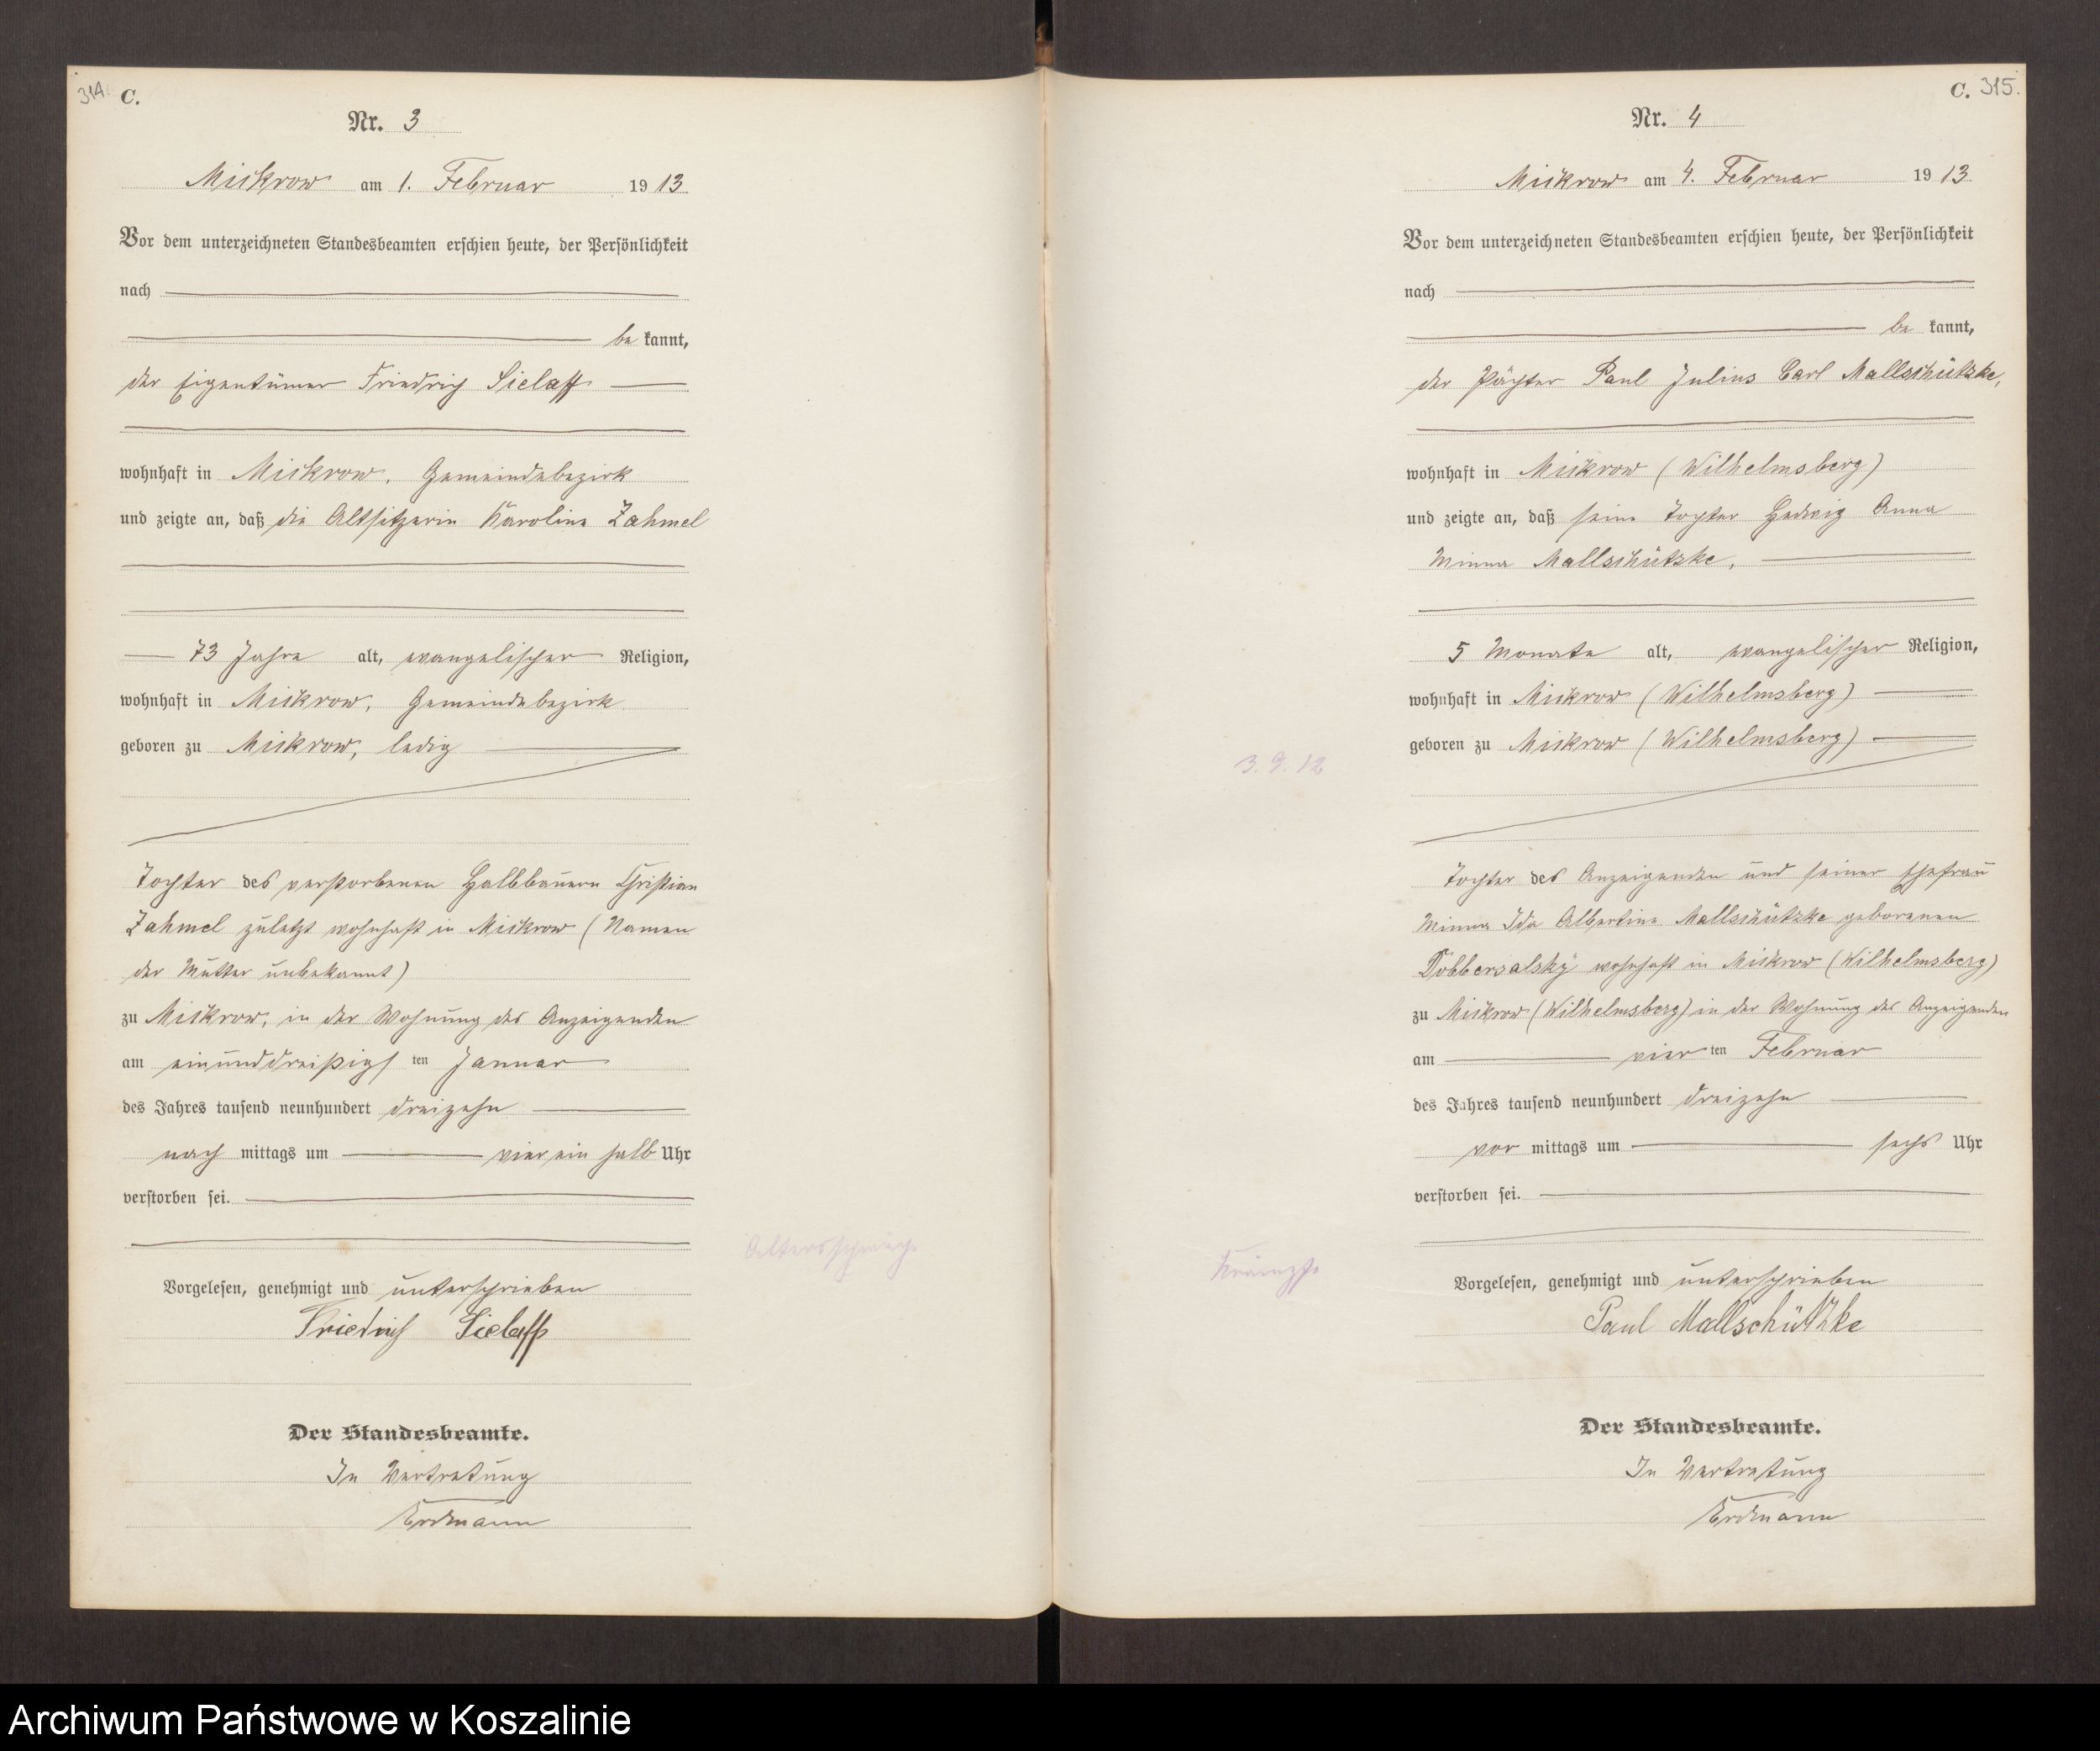 314.
C.
Nr. 3
Mickrow am 1. Februar 1913
Vor dem unterzeichneten Standesbeamten erschien heute, der Persönlichkeit
nach
be kannt,
der Eigentümer Friedrich Sielaff
wohnhaft in Mickrow, Gemeindebezirk
und zeigte an, daß die Altsitzerin Karoline Zahmel
73 Jahre alt, evangelischer Religion,
wohnhaft in Mickrow, Gemeindebezirk
geboren zu Mickrow, ledig
Tochter des verstorbenen Halbbauern Christian
Zahmel zuletzt wohnhaft in Mickrow (Namen
der Mutter unbekannt)
zu Mickrow, in der Wohnung des Anzeigenden
am einunddreißigsten Januar
des Jahres tausend neunhundert dreizehn
nach mittags um vier ein halb Uhr
verstorben sei.
Altersschwäche
Vorgelesen, genehmigt und unterschrieben
Friedrich Sielaff
Der Standesbeamte.
In Vertretung
Erdmann
C. 315.
Nr. 4
Mickrow am 4. Februar 1913
Vor dem unterzeichneten Standesbeamten erschien heute, der Persönlichkeit
nach
be kannt,
der Pächter Paul Julius Carl Mallschützke,
wohnhaft in Mickrow (Wilhelmsberg)
und zeigte an, daß seine Tochter Hedwig Anna
Minna Mallschützke,
5 Monate alt, evangelischer Religion,
wohnhaft in Mickrow (Wilhelmsberg)
geboren zu Mickrow (Wilhelmsberg)
3.9.12
Tochter des Anzeigenden und seiner Ehefrau
Minna Ida Albertine Mallschützke geborenen
Dobbersalsky wohnhaft in Mickrow (Wilhelmsberg)
zu Mickrow (Wilhelmsberg) in der Wohnung des Anzeigenden
am vierten Februar
des Jahres tausend neunhundert dreizehn
vor mittags um sechs Uhr
verstorben sei.
Krämpfe
Vorgelesen, genehmigt und unterschrieben
Paul Mallschützke
Der Standesbeamte.
In Vertretung
Erdmann
Archiwum Państwowe w Koszalinie